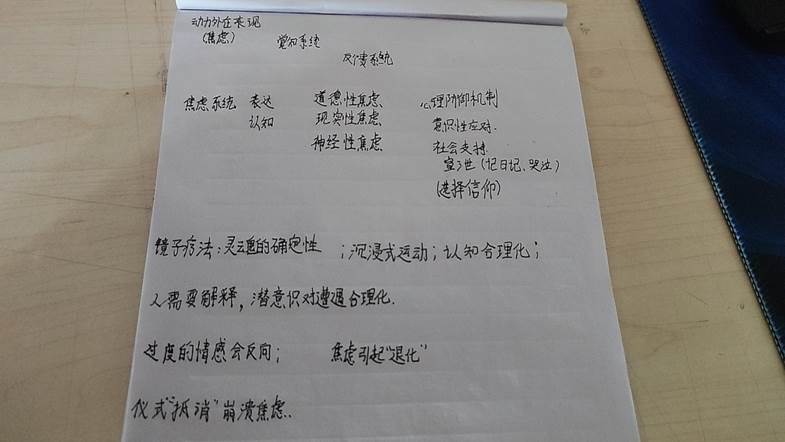 动力外在表现
(焦虑) 觉知系统
反馈系统
焦虑系统 表达 道德性焦虑 心理防御机制
认知 现实性焦虑 意识性应对.
神经性焦虑 社会支持.
宣泄(记日记、哭泣)
(选择信仰)
镜子疗法:灵魂的确定性 ;沉浸式运动;认知合理化;
人需要解释,潜意识对遭遇合理化.
过度的情感会反向; 焦虑引起“退化”
仪式“抵消”崩溃焦虑..